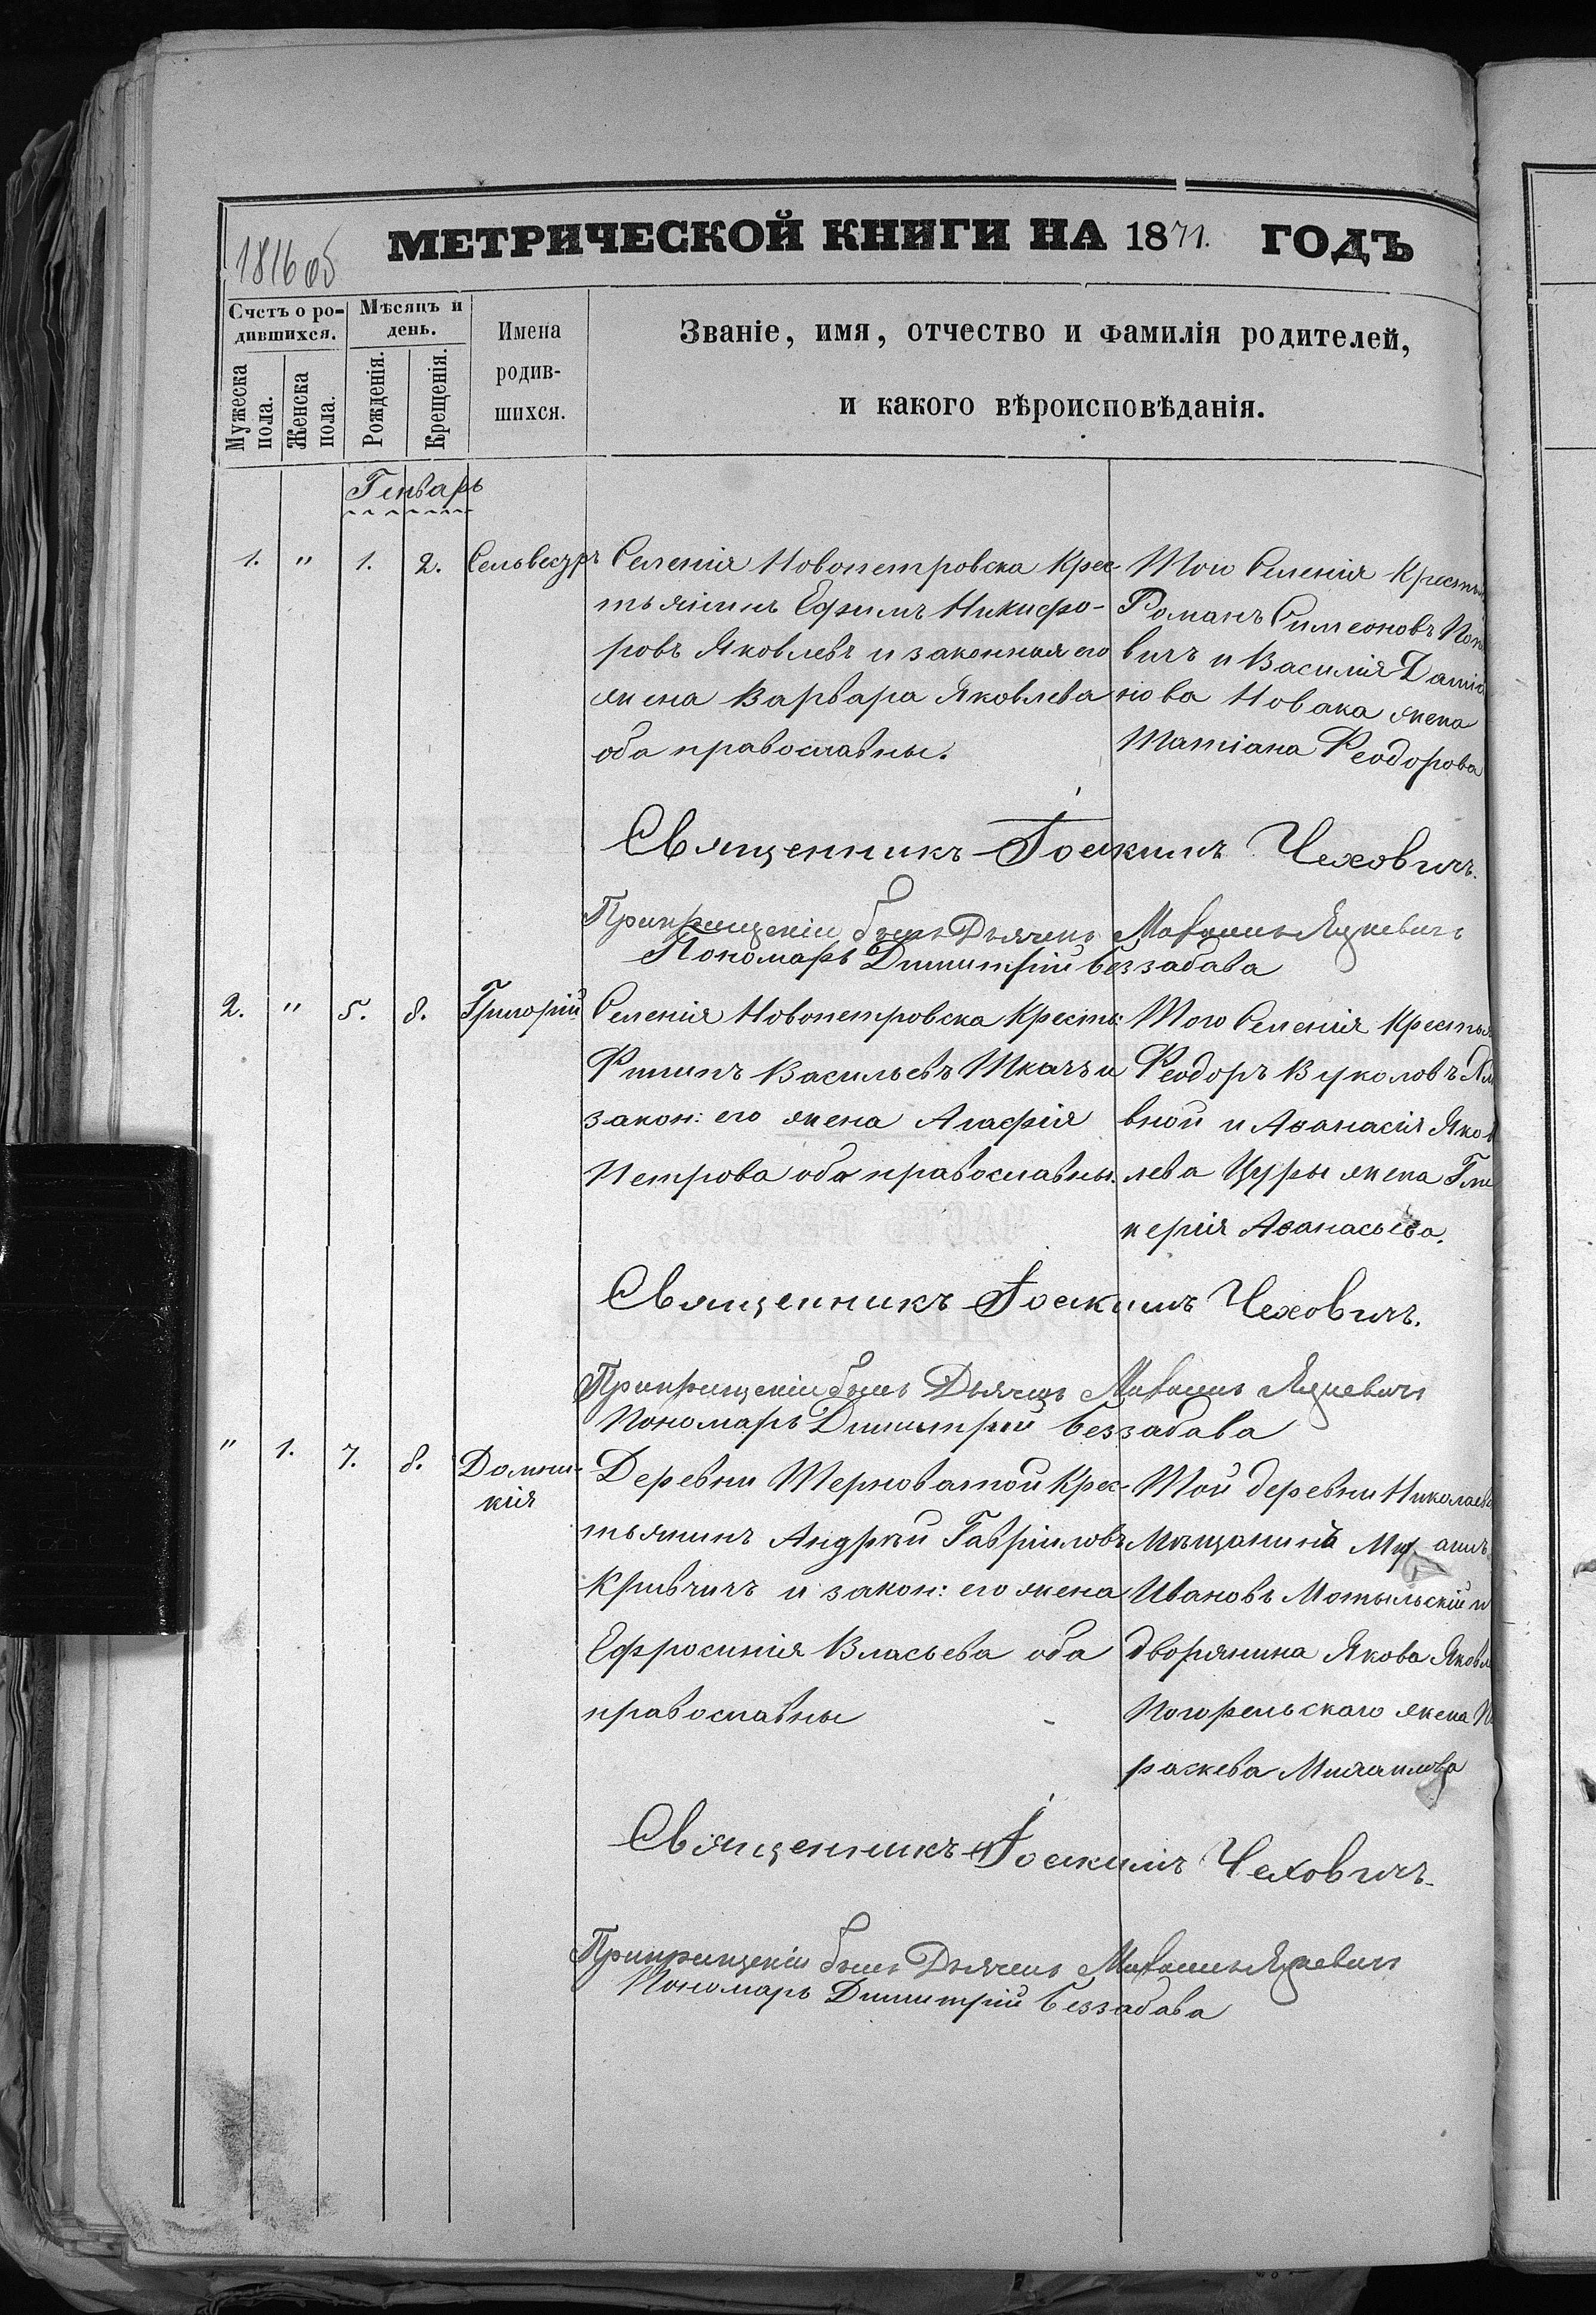 1816 об
МЕТРИЧЕСКОЙ КНИГИ НА 1871. ГОДЪ
Счетъ о родившихся.
Мужеска пола.
Женска пола.
Мѣсяцъ и день.
Рожденія.
Крещенія.
Имена родившихся.
Званіе, имя, отчество и фамилія родителей,
и какого вѣроисповѣданія.
Генварь
1. " 1. 2. Сельвестръ
Селенія Новопетровска Крес-
тьянинъ Ефимъ Никифо-
ровъ Яковлевъ и законная его
жена Варвара Яковлева
оба православны.
Того Селенія
Романъ Симеоновъ
вичъ и Василія
нова Новака жена
Татіана Ѳеодорова
Священникъ Іоакимъ Чеховичъ.
При крещеніи былъ Дьячекъ
Пономарь Димитрій Беззабава
2. " 5. 8. Григорій
Селенія Новопетровска Кресть:
Филипъ Васильевъ Ткачъ и
закон: его жена Агафія
Петрова оба православны.
Того Селенія
Ѳеодоръ Вуколовъ
вной и Аѳанасія Яков
лева Цуры жена Гли
керія Аѳанасьева.
Священникъ Іоакимъ Чеховичъ.
При крещеніи былъ Дьячекъ
Пономарь Димитрій Беззабава
" 1. 7. 8. Домни-
кія
Деревни Терноватой Крес-
тьянинъ Андрей Гавріиловъ
Кривчичъ и закон: его жена
Ефросинія Власьева оба
православны
Той деревни
Мѣщанинъ
Ивановъ Мотыльскій и
дворянина Якова
Погорельскаго жена
раскева Михаилова
Священникъ Іоакимъ Чеховичъ.
При крещеніи былъ Дьячекъ
Пономарь Димитрій Беззабава